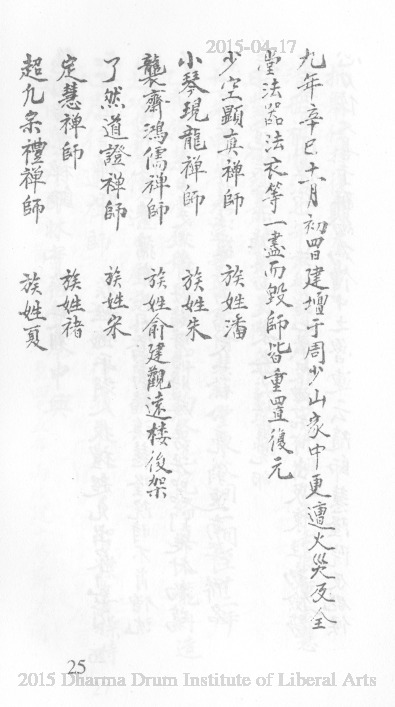 2015-04-17
九年辛巳十一月初四日建壇于周少山家中更遭火災及全
堂法器法衣等一盡而毀師皆重置復元
少空顯真禪師 族姓潘
小琴現龍禪師 族姓朱
襲齋鴻儒禪師 族姓俞建觀遠樓後架
了然道證禪師 族姓宋
定慧禪師 族姓褚
超凡宗禮禪師 族姓夏
25
2015 Dharma Drum Institute of Liberal Arts